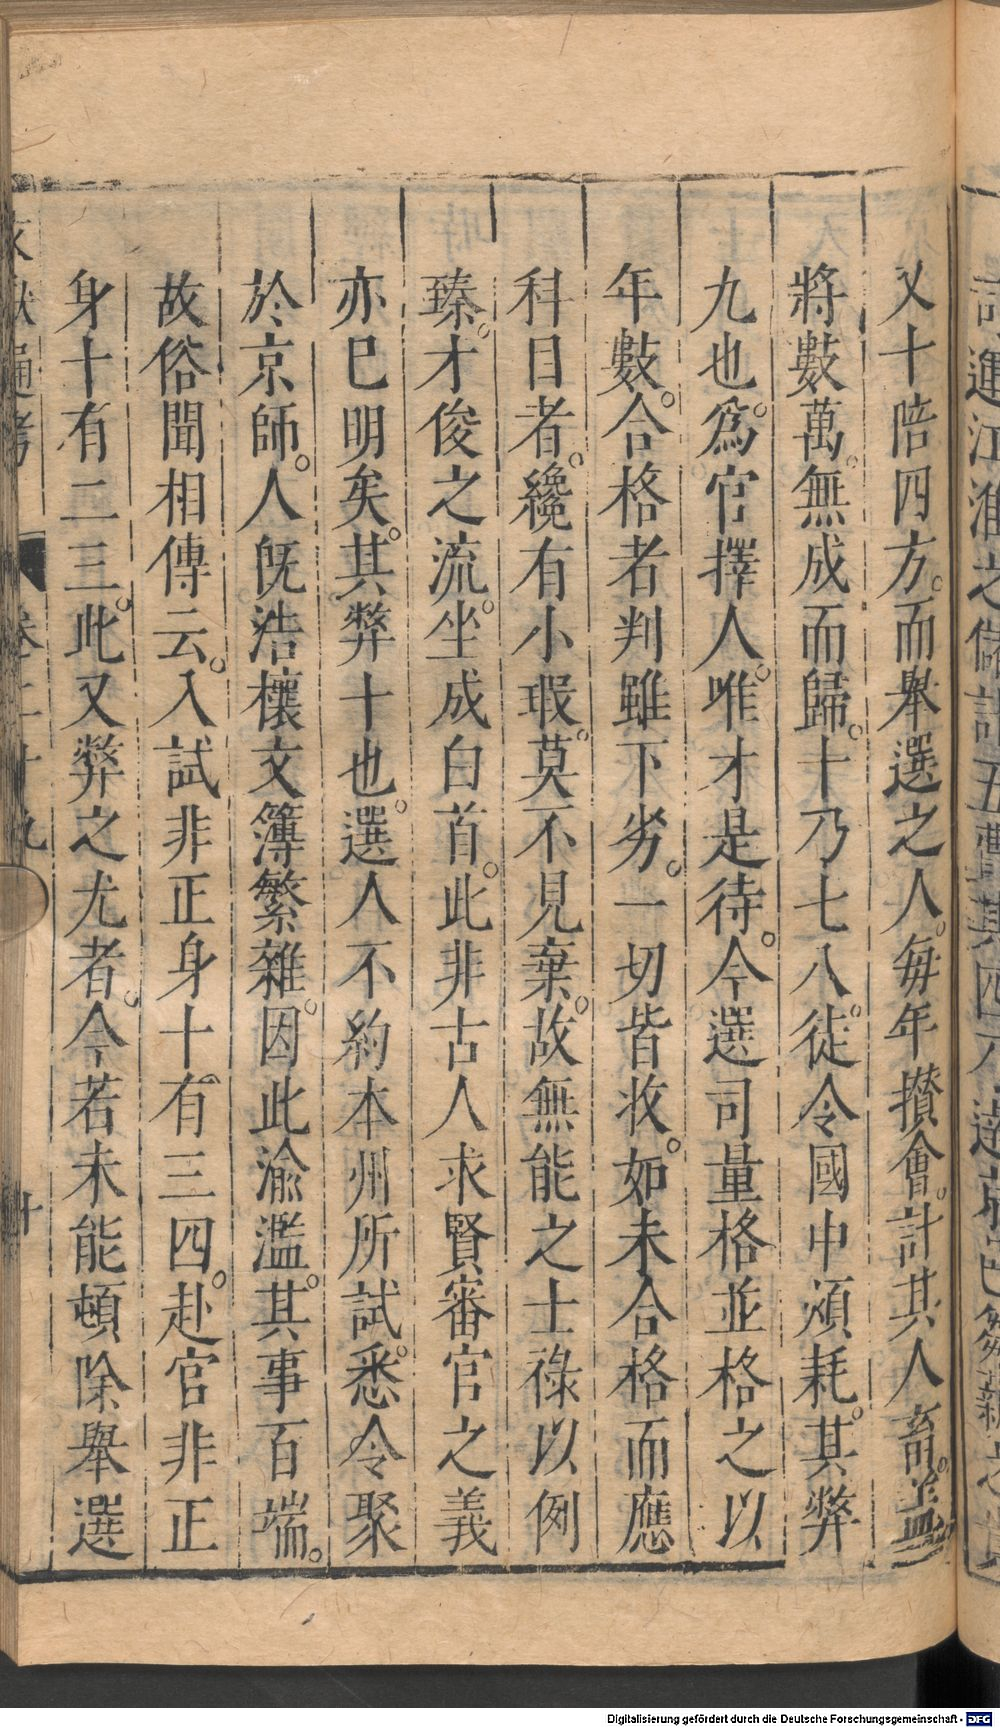 又十陪四方。而舉選之人。每年攢會。計其人畜。盖
將數萬。無成而歸。十乃七八。徒令國中煩耗。其弊
九也。爲官擇人。唯才是待。今選司量格並格之以
年數。合格者判雖下劣。一切皆收。如未合格而應
科目者。纔有小瑕。莫不見棄。故無能之士祿以例
臻。才俊之流。坐成白首。此非古人求賢審官之義
亦已明矣。其弊十也。選人不約本州所試。悉令聚
於京師。人旣浩穰文簿繁雜。因此渝濫。其事百端。
故俗聞相傳云。入試非正身十有三四。赴官非正
身十有二三。此又弊之尤者。今若未能頓除舉選
文獻通考 卷二十九 十
Digitalisierung gefördert durch die Deutsche Forschungsgemeinschaft - DFG